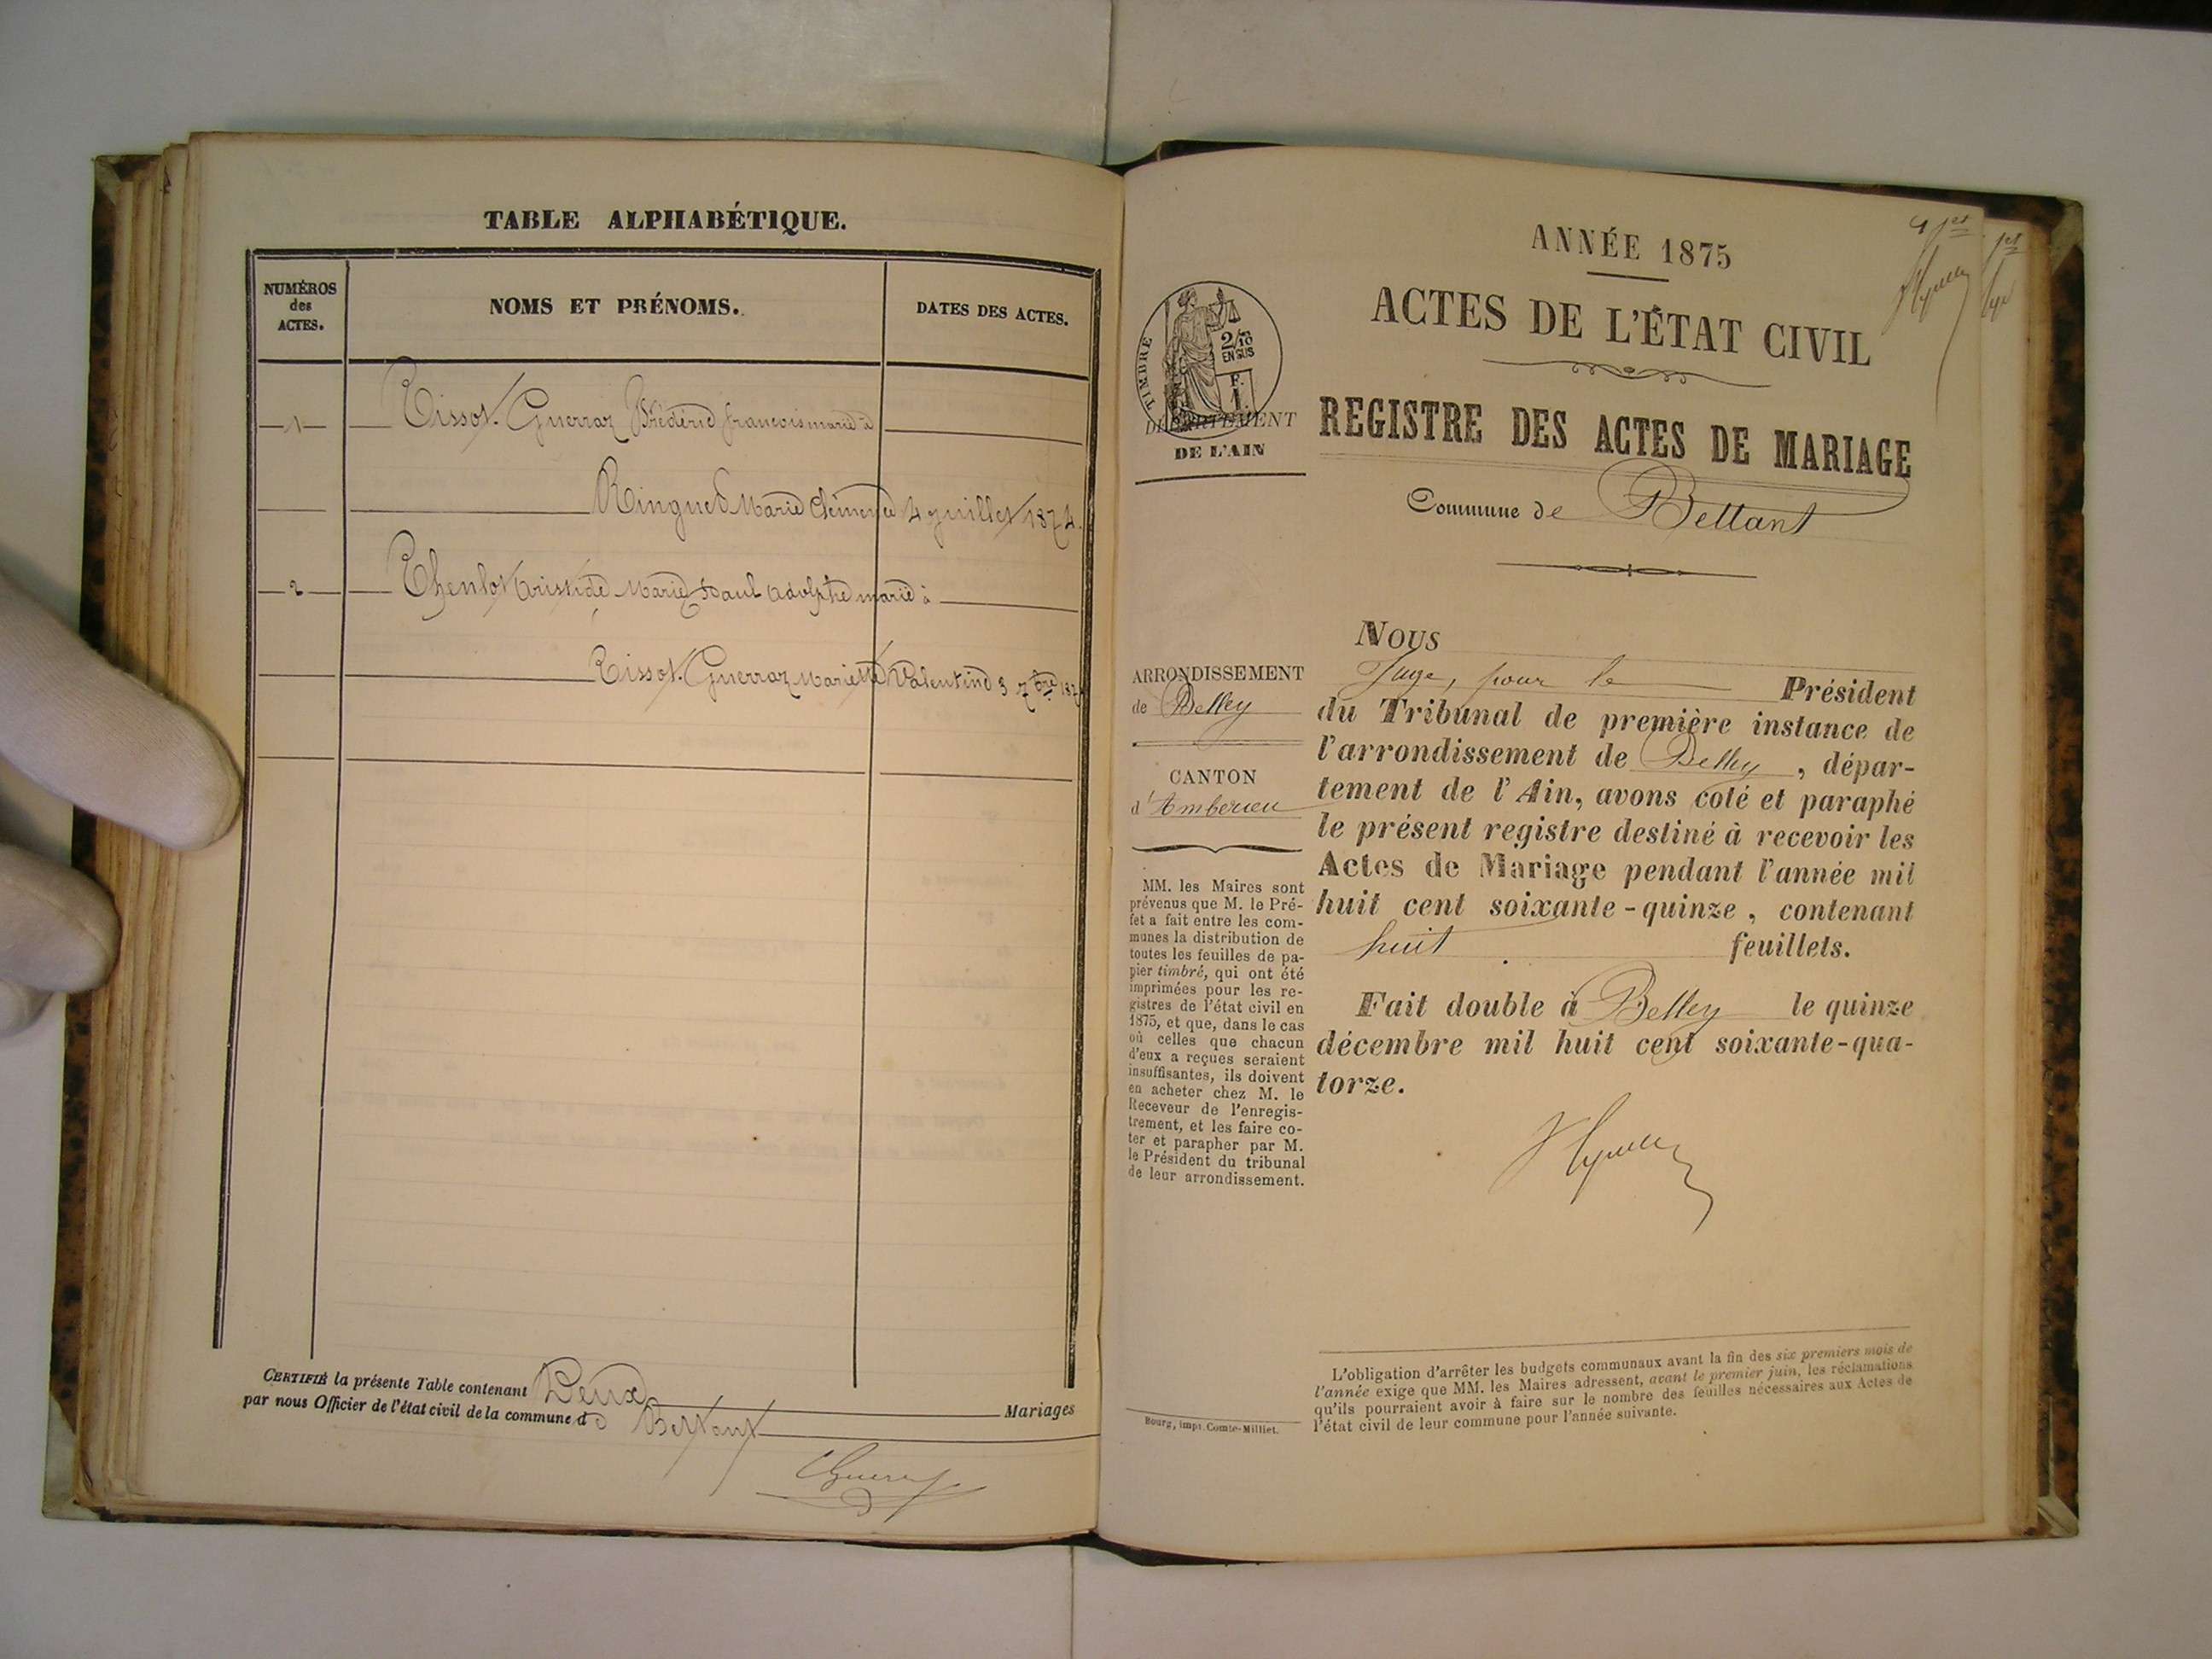 TABLE ALPHABÉTIQUE.
NUMÉROS
des
ACTES.
NOMS ET PRÉNOMS.
DATES DES ACTES.
1 Tissot-Guerraz Frédéric françois marié à
Ringued Marie Clémence 4 juillet 1874.
2 Thenlot Aristide Marie Paul Adolphe marié à
Tissot-Guerraz Mariette Valentine 3 7bre
CERTIFIÉ la présente Table contenant Deux Mariages
par nous Officier de l'état civil de la commune de Bettant
ANNÉE 1875
ACTES DE L'ÉTAT CIVIL
REGISTRE DES ACTES DE MARIAGE
Commune de Bettant
TIMBRE
2/10
EN SUS
F.
1.
DÉPARTEMENT
DE L'AIN
ARRONDISSEMENT
de Belley
CANTON
d'Amberieu
MM. les Maires sont
prévenus que M. le Pré-
fet a fait entre les com-
munes la distribution de
toutes les feuilles de pa-
pier timbré, qui ont été
imprimées pour les re-
gistres de l'état civil en
1875, et que, dans le cas
où celles que chacun
d'eux a reçues seraient
insuffisantes, ils doivent
en acheter chez M. le
Receveur de l'enregis-
trement, et les faire co-
ter et parapher par M.
le Président du tribunal
de leur arrondissement.
Bourg, impr. Comte-Milliet.
Nous
Juge, pour le Président
du Tribunal de première instance de
l'arrondissement de Belley, dépar-
tement de l'Ain, avons coté et paraphé
le présent registre destiné à recevoir les
Actes de Mariage pendant l'année mil
huit cent soixante-quinze, contenant
huit feuillets.
Fait double à Belley le quinze
décembre mil huit cent soixante-qua-
torze.
L'obligation d'arrêter les budgets communaux avant la fin des six premiers mois de
l'année exige que MM. les Maires adressent, avant le premier juin, les réclamations
qu'ils pourraient avoir à faire sur le nombre des feuilles nécessaires aux Actes de
l'état civil de leur commune pour l'année suivante.